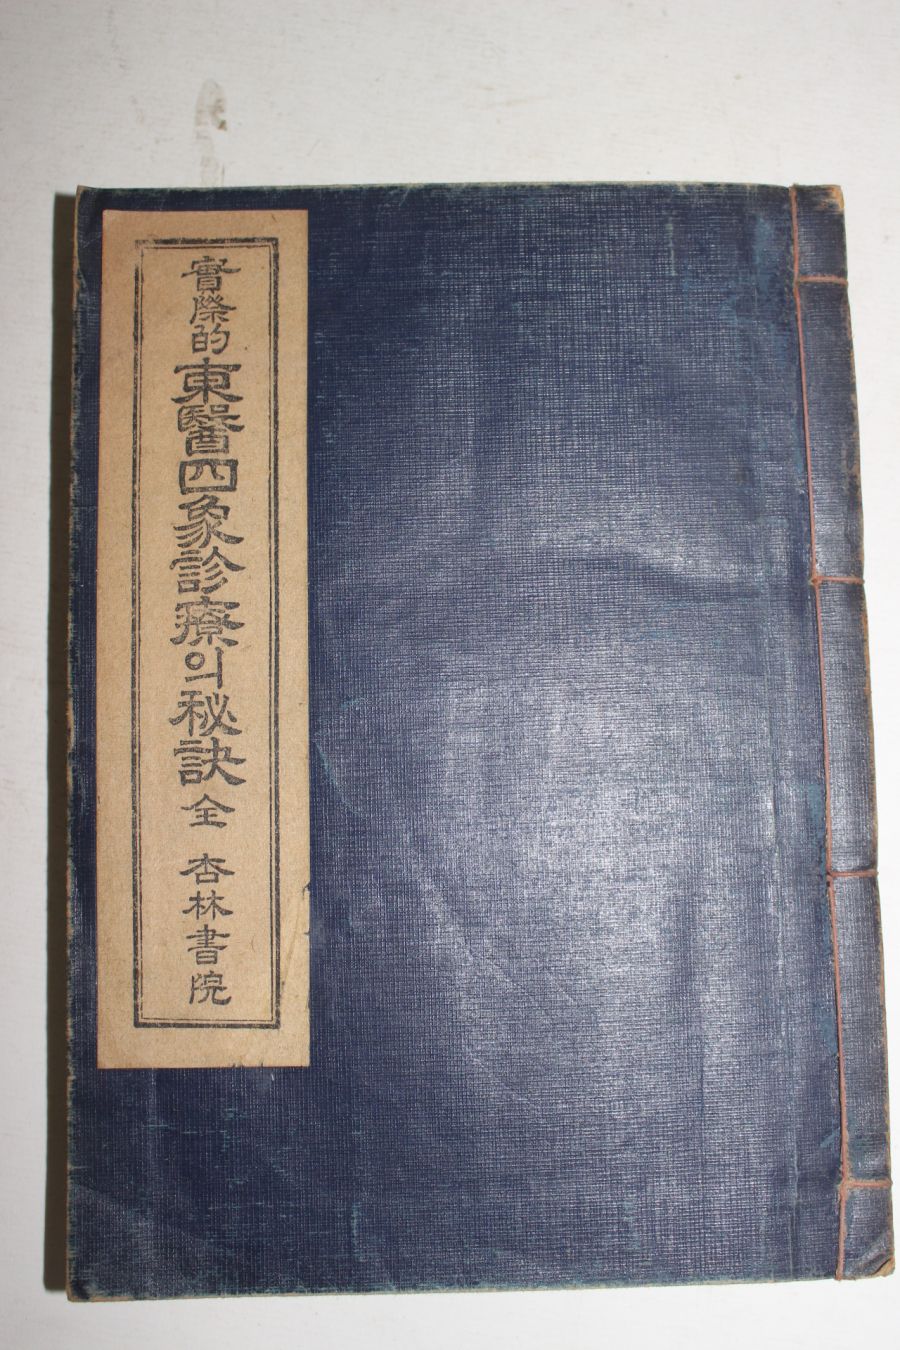 實際的 東醫四象診療의 秘訣 全 杏林書院